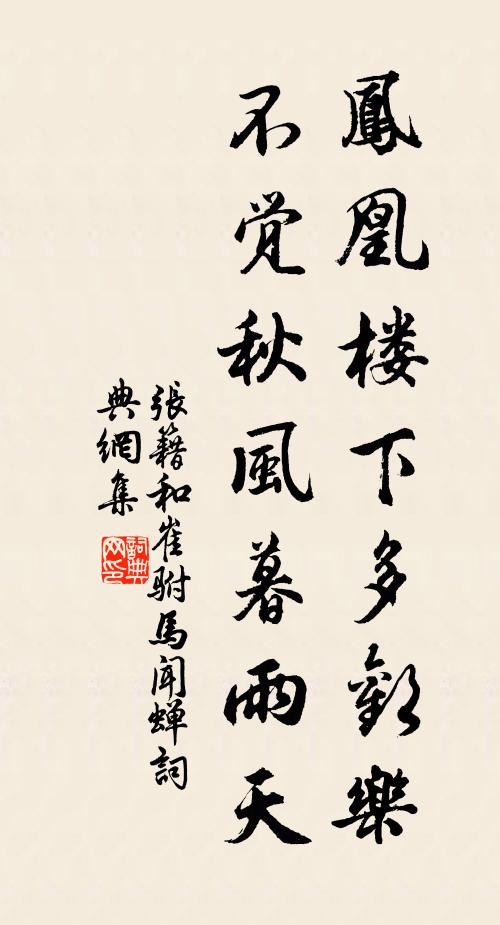 鳳凰楼下多歡樂
不覺秋風暮雨天
張籍和崔駙馬聞蟬詞
典網集
詞典网印